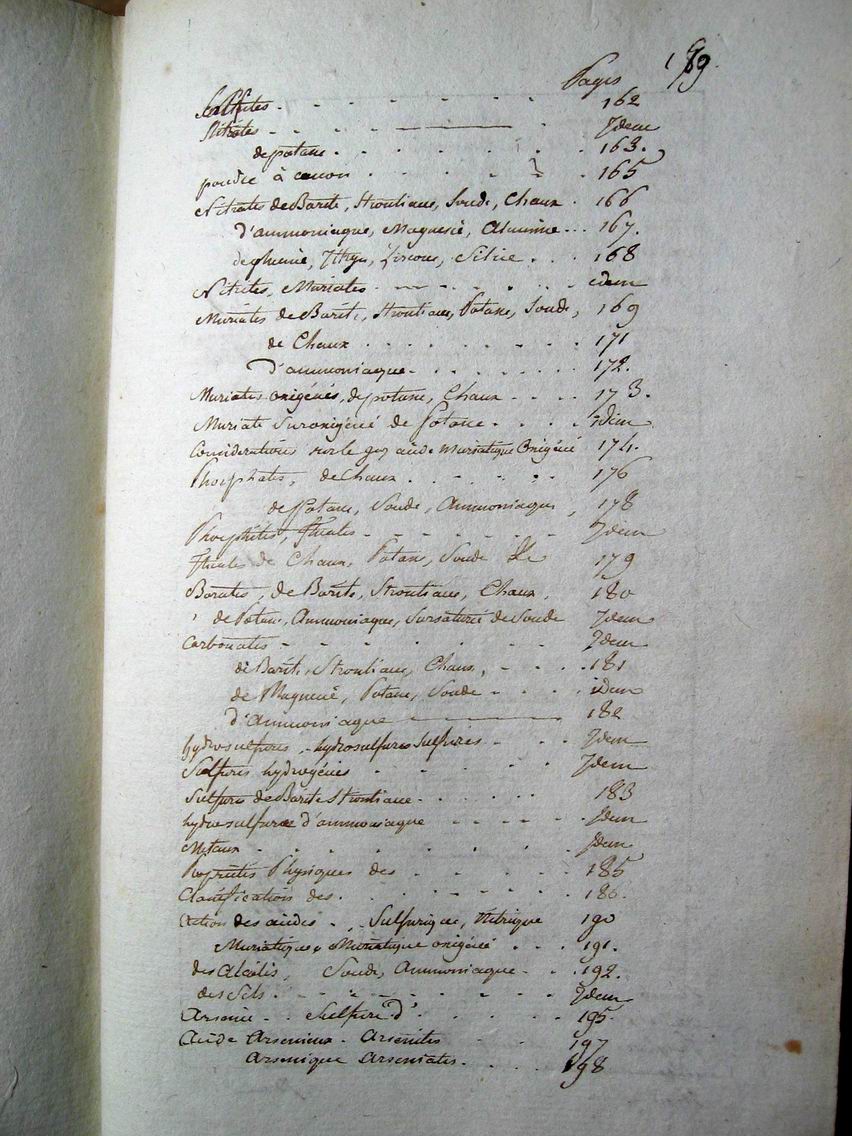 Pages
Sulfites - - - - - - 162
Nitrates - - - Idem
de potasse . . . . . . 163.
poudre à canon . . . . . 165
Nitrates de Barite, Strontiane, Soude, Chaux . 166
d'ammoniaque, Magnesie, Alumine - - . 167.
de glucine, Ittrya, Zircone, Silice . . . 168
Nitrites, Muriates - - - . . . idem
Muriates de Barite, Strontiane, Potasse, Soude, 169
de Chaux . . . . . . . . 171
d'ammoniaque - . . . . . . 172.
Muriates oxigénés, de potasse, Chaux - . . . 173.
Muriate Suroxigéné de Potasse . . . . idem
Considerations sur le gaz acide Muriatique Oxigéné 174.
Phosphates, de Chaux . . . . . . 176
de Potasse, Soude, Ammoniaque, 178
Phosphites, Fluates - - . - . . . Idem
Fluates de Chaux, Potasse, Soude &c 179
Borates, de Barite, Strontiane, Chaux, 180
de Potasse, Ammoniaque, Sursaturé de Soude Idem
Carbonates - - . . . . Idem
de Barite, Strontiane, Chaux, - . . . 181
de Magnesie, Potasse, Soude - . . . idem
d'Ammoniaque 182
hydrosulfures, - hydrosulfures Sulfurés - . . Idem
Sulfures hydrogénés - . . . . Idem
Sulfure de Barite Strontiane - . . . 183
hydrosulfure d'ammoniaque - - - - Idem
Metaux . . . . . . . Idem
Propriétés Physiques des - . . . . 185
Classification des . . . . . . . 186.
Action des acides - . . Sulfurique, Nitrique 190
Muriatique, Muriatique oxigéné . . . 191.
des Alcalis, Soude, Ammoniaque - . . 192.
des Sels . - . . . - . . . Idem
Arsenic - . . Sulfure d' . . . . . 195.
Acide Arsenieux - Arsenites 197
Arsenique Arseniates . . . . . 198